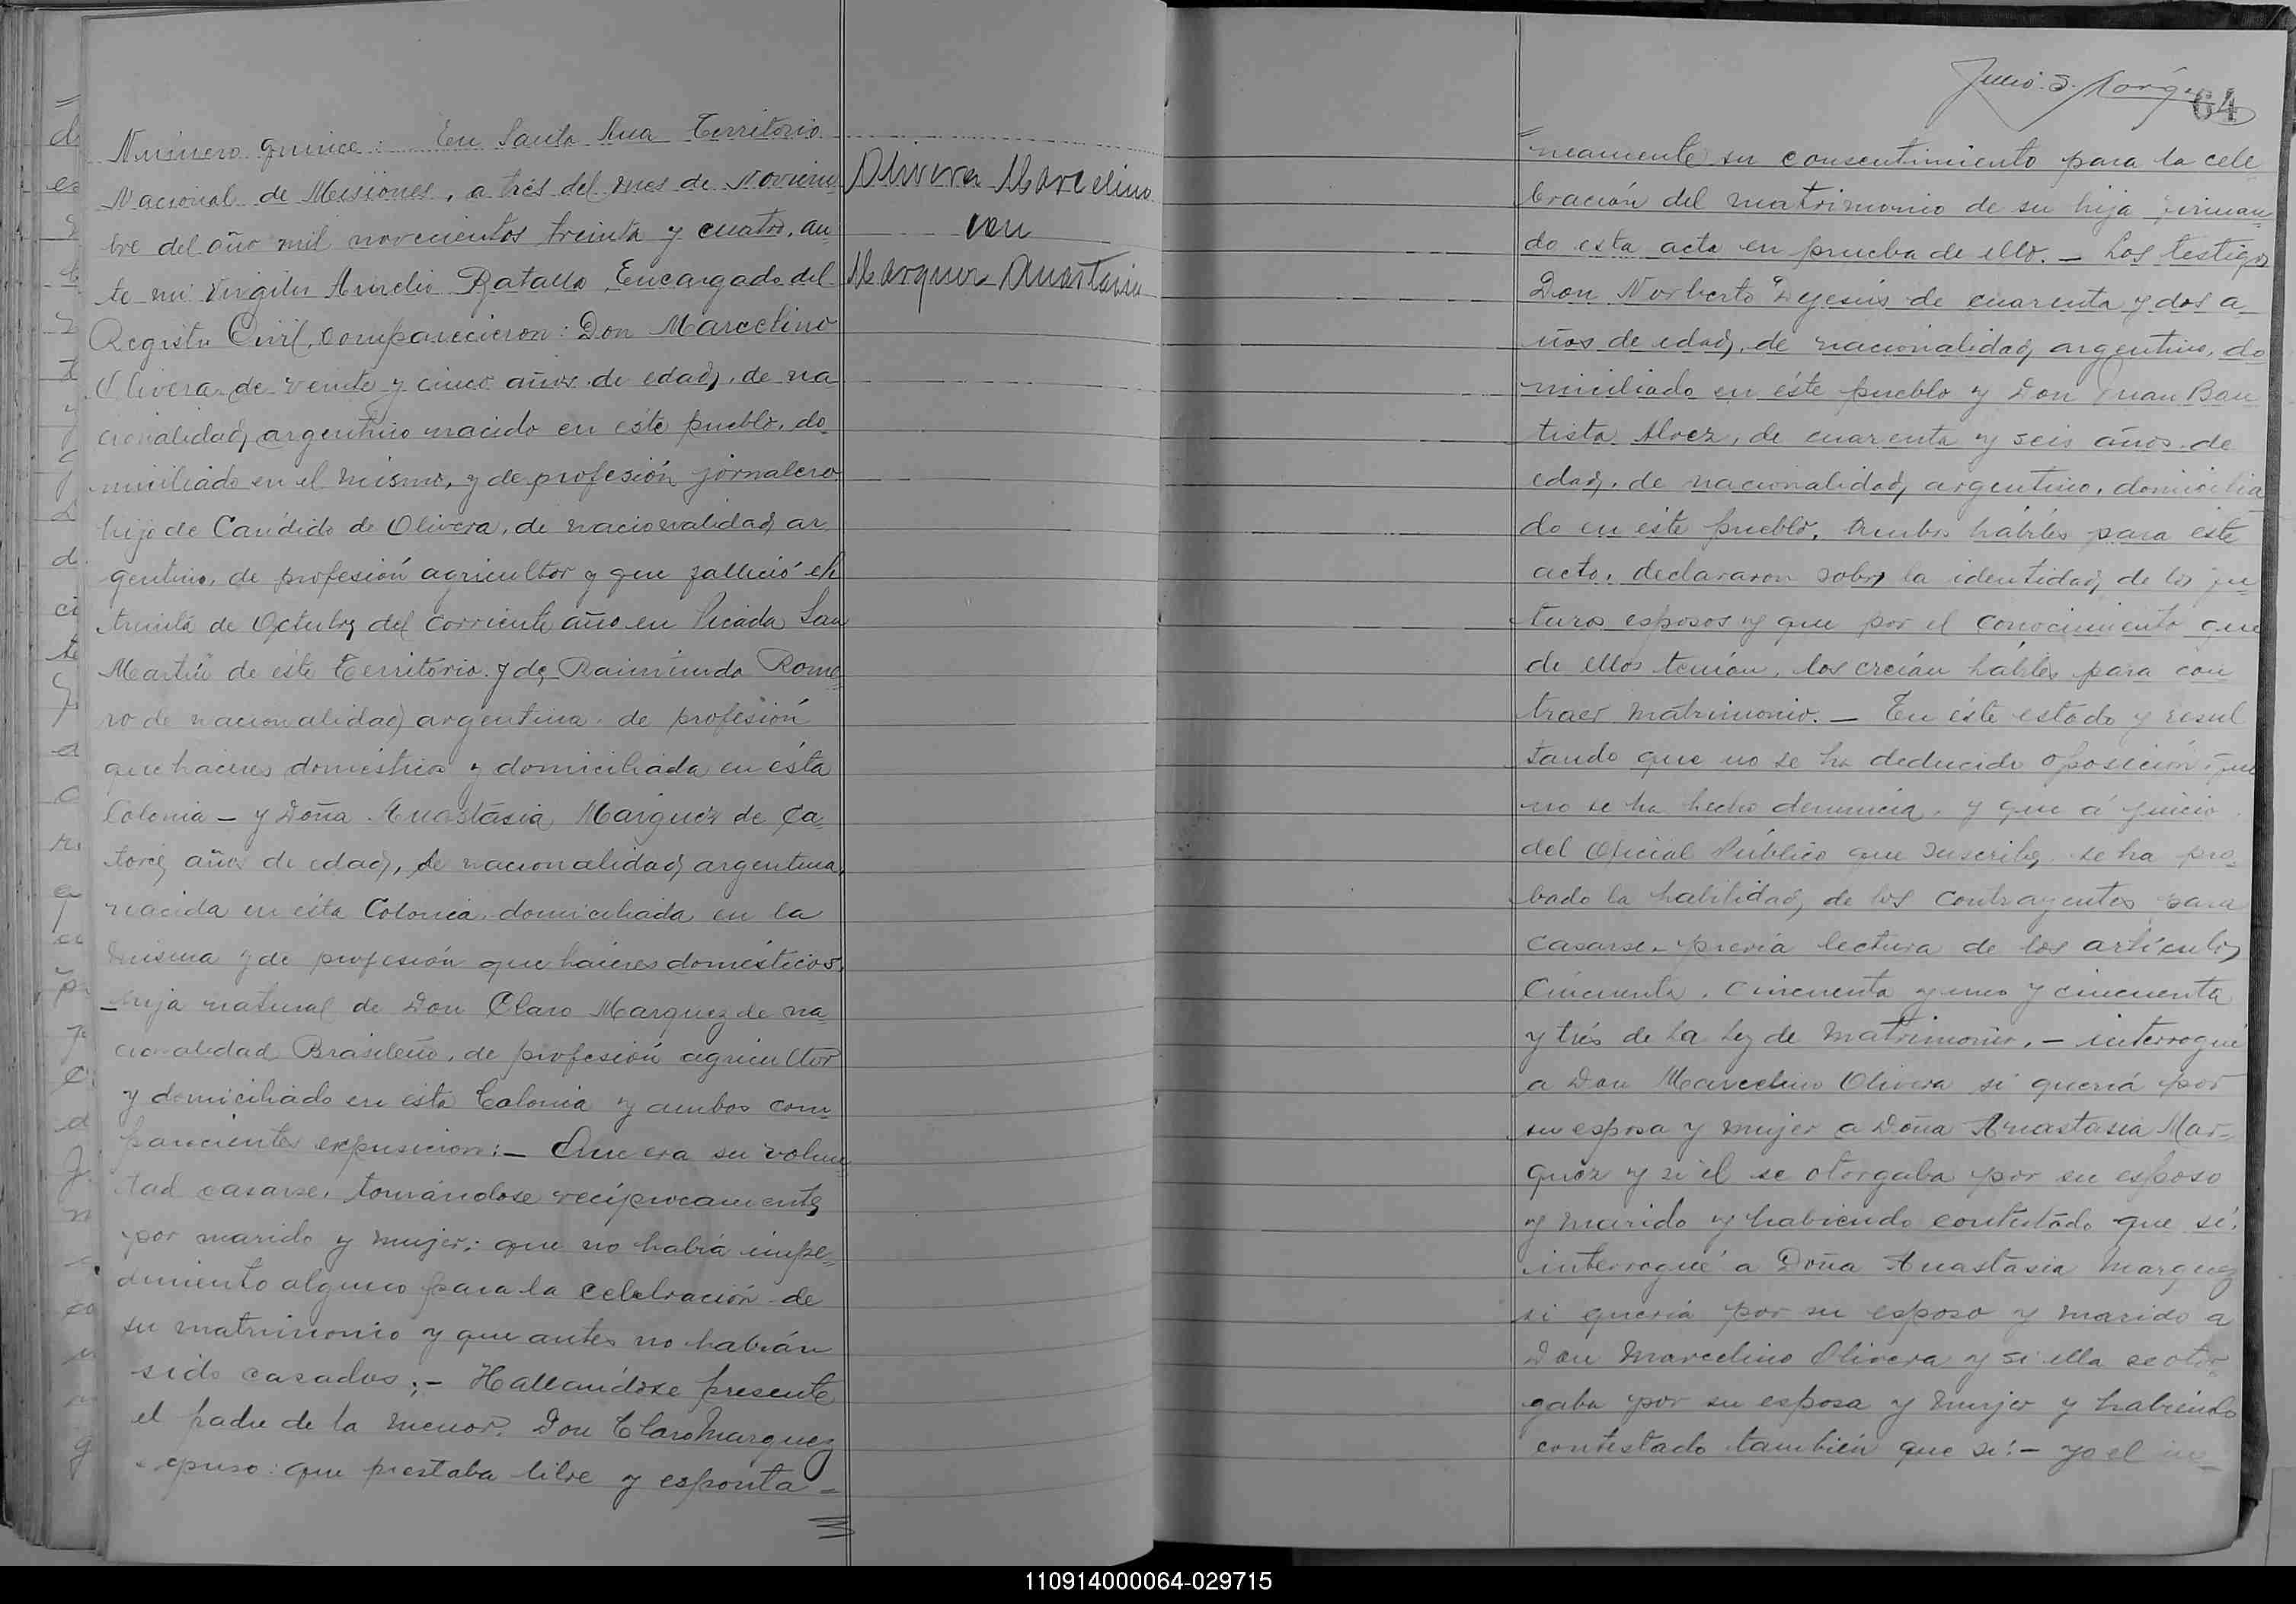 Número quince: En Santa Ana Territorio
Nacional de Misiones, a trés del mes de Noviem
bre del año mil novecientos treinta y cuatro, an
te mi Virgilio Aurelio Ratallo Encargado del
Registro Civil, comparecieron: Don Marcelino
Olivera de veinte y cinco años de edad, de na
cionalidad argentino nacido en este pueblo, do
miciliado en el mismo, y de profesión jornalero
hijo de Candido de Olivera, de nacionalidad ar
gentino, de profesión agricultor y que falleció el
treinta de Octubre del corriente año en Picada San
Martín de este Territorio y de Raimunda Rome
ro de nacionalidad argentina de profesión
quehaceres doméstica y domiciliada en ésta
Colonia - y Doña Anastásia Márquez de ca
torce años de edad, de nacionalidad argentina,
nacida en ésta Colonia, domiciliada en la
misma y de profesión quehaceres domésticos,
hija natural de Don Claro Marquez de na
cionalidad Brasileño, de profesión agricultor
y domiciliado en ésta Colonia y ambos com
parecientes expusieron:- Que era su volun
tad casarse, tomándose recíprocamente
por marido y mujer; que no habiá impe-
dimiento alguno para la celebración de
su matrimonio y que antes no habián
sido casados;- Hallandose presente
el padre de la menor Don Claro Marquez
expuso: que prestaba libre y esponta-
Olivera Marcelino
con
Marquez Anastasia
64
neamente su consentimiento para la cele
bración del matrimonio de su hija firman
do esta acta en prueba de ello.- Los testigos
Don Norberto Dejesús de cuarenta y dos a-
ños de edad, de nacionalidad argentino, do
miciliado en éste pueblo y Don Juan Bau
tista Alvez, de cuarenta y seis años de
edad, de nacionalidad argentino, domicilia
do en éste pueblo, ambos hábiles para éste
acto, declararon sobre la identidad de los fu
turos esposos y que por el conocimiento que
de ellos tenían, los creían hábiles para con
traer matrimonio.- En éste estado y resul
tando que no se ha deducido oposición, que
no se ha hecho denuncia, y que á juicio
del Oficial Público que suscribe, se ha pro-
bado la habilidad de los contrayentes para
casarse, previa lectura de los artículos
cincuenta, cincuenta y uno y cincuenta
y trés de La Ley de Matrimonio,- interrogué
a Don Marcelino Olivera si queriá por
su esposa y mujer a Doña Anastasia Mar-
quez y si él se otorgaba por su esposo
y marido y habiendo contestado que sí,
interrogué a Doña Anastásia Marquez
si queriá por su esposo y marido a
Don Marcelino Olivera y si ella se otor
gaba por su esposa y mujer y habiendo
contestado también que sí:- yo el in-
110914000064-029715